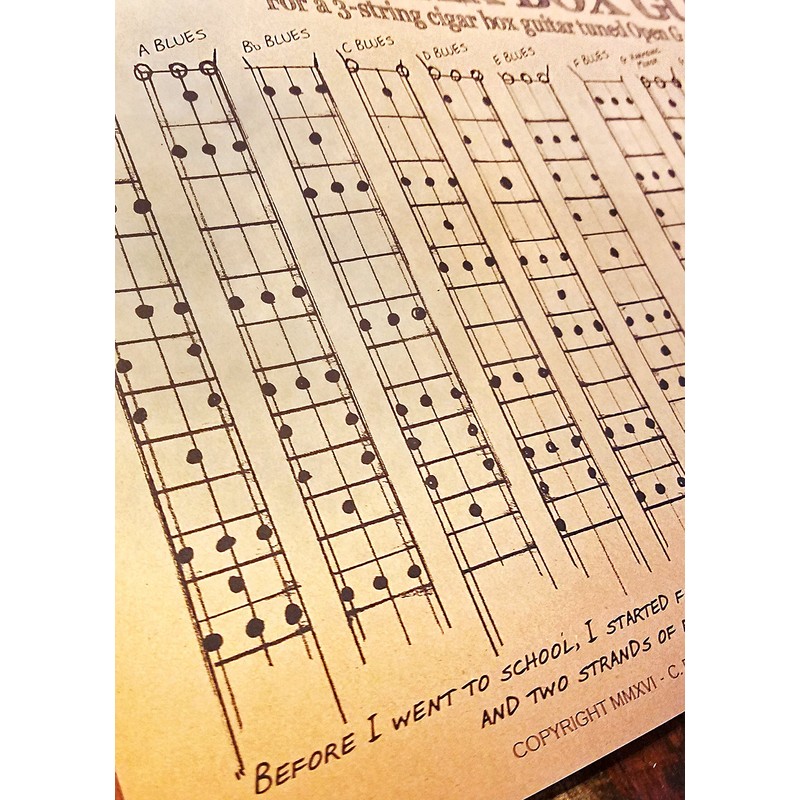 BOX GU
For a 3-string cigar box guitar tuned Open G
A BLUES
Bb BLUES
C BLUES
D BLUES
E BLUES
F BLUES
G HARMONIC
MINOR
"BEFORE I WENT TO SCHOOL, I STARTED F
AND TWO STRANDS OF
COPYRIGHT MMXVI - C.